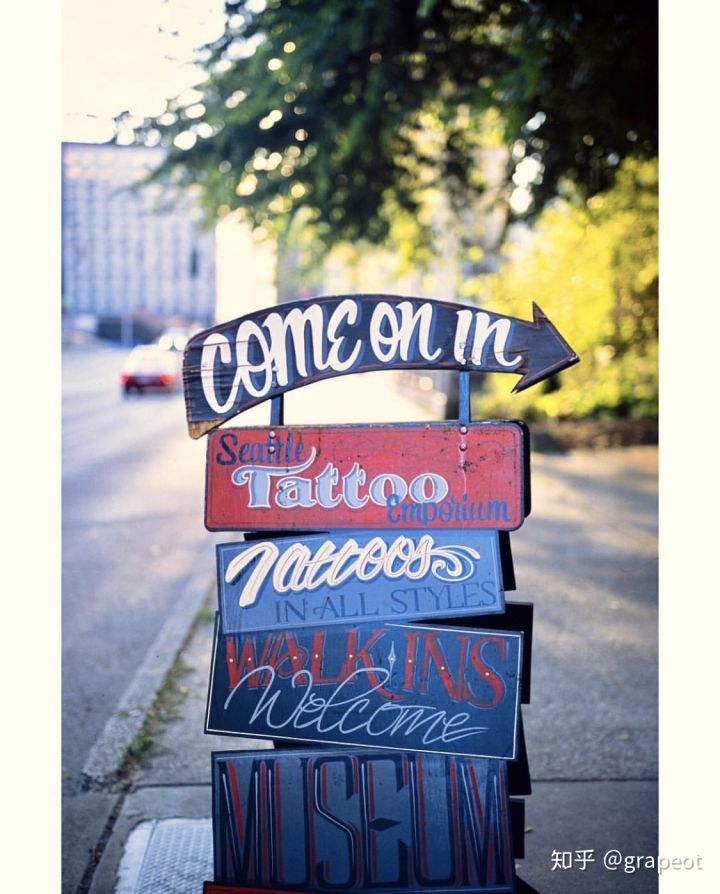 COME ON IN
Seattle
Tattoo
Emporium
Tattoos
IN ALL STYLES
WALK INS
Welcome
MUSEUM
知乎 @grapeot